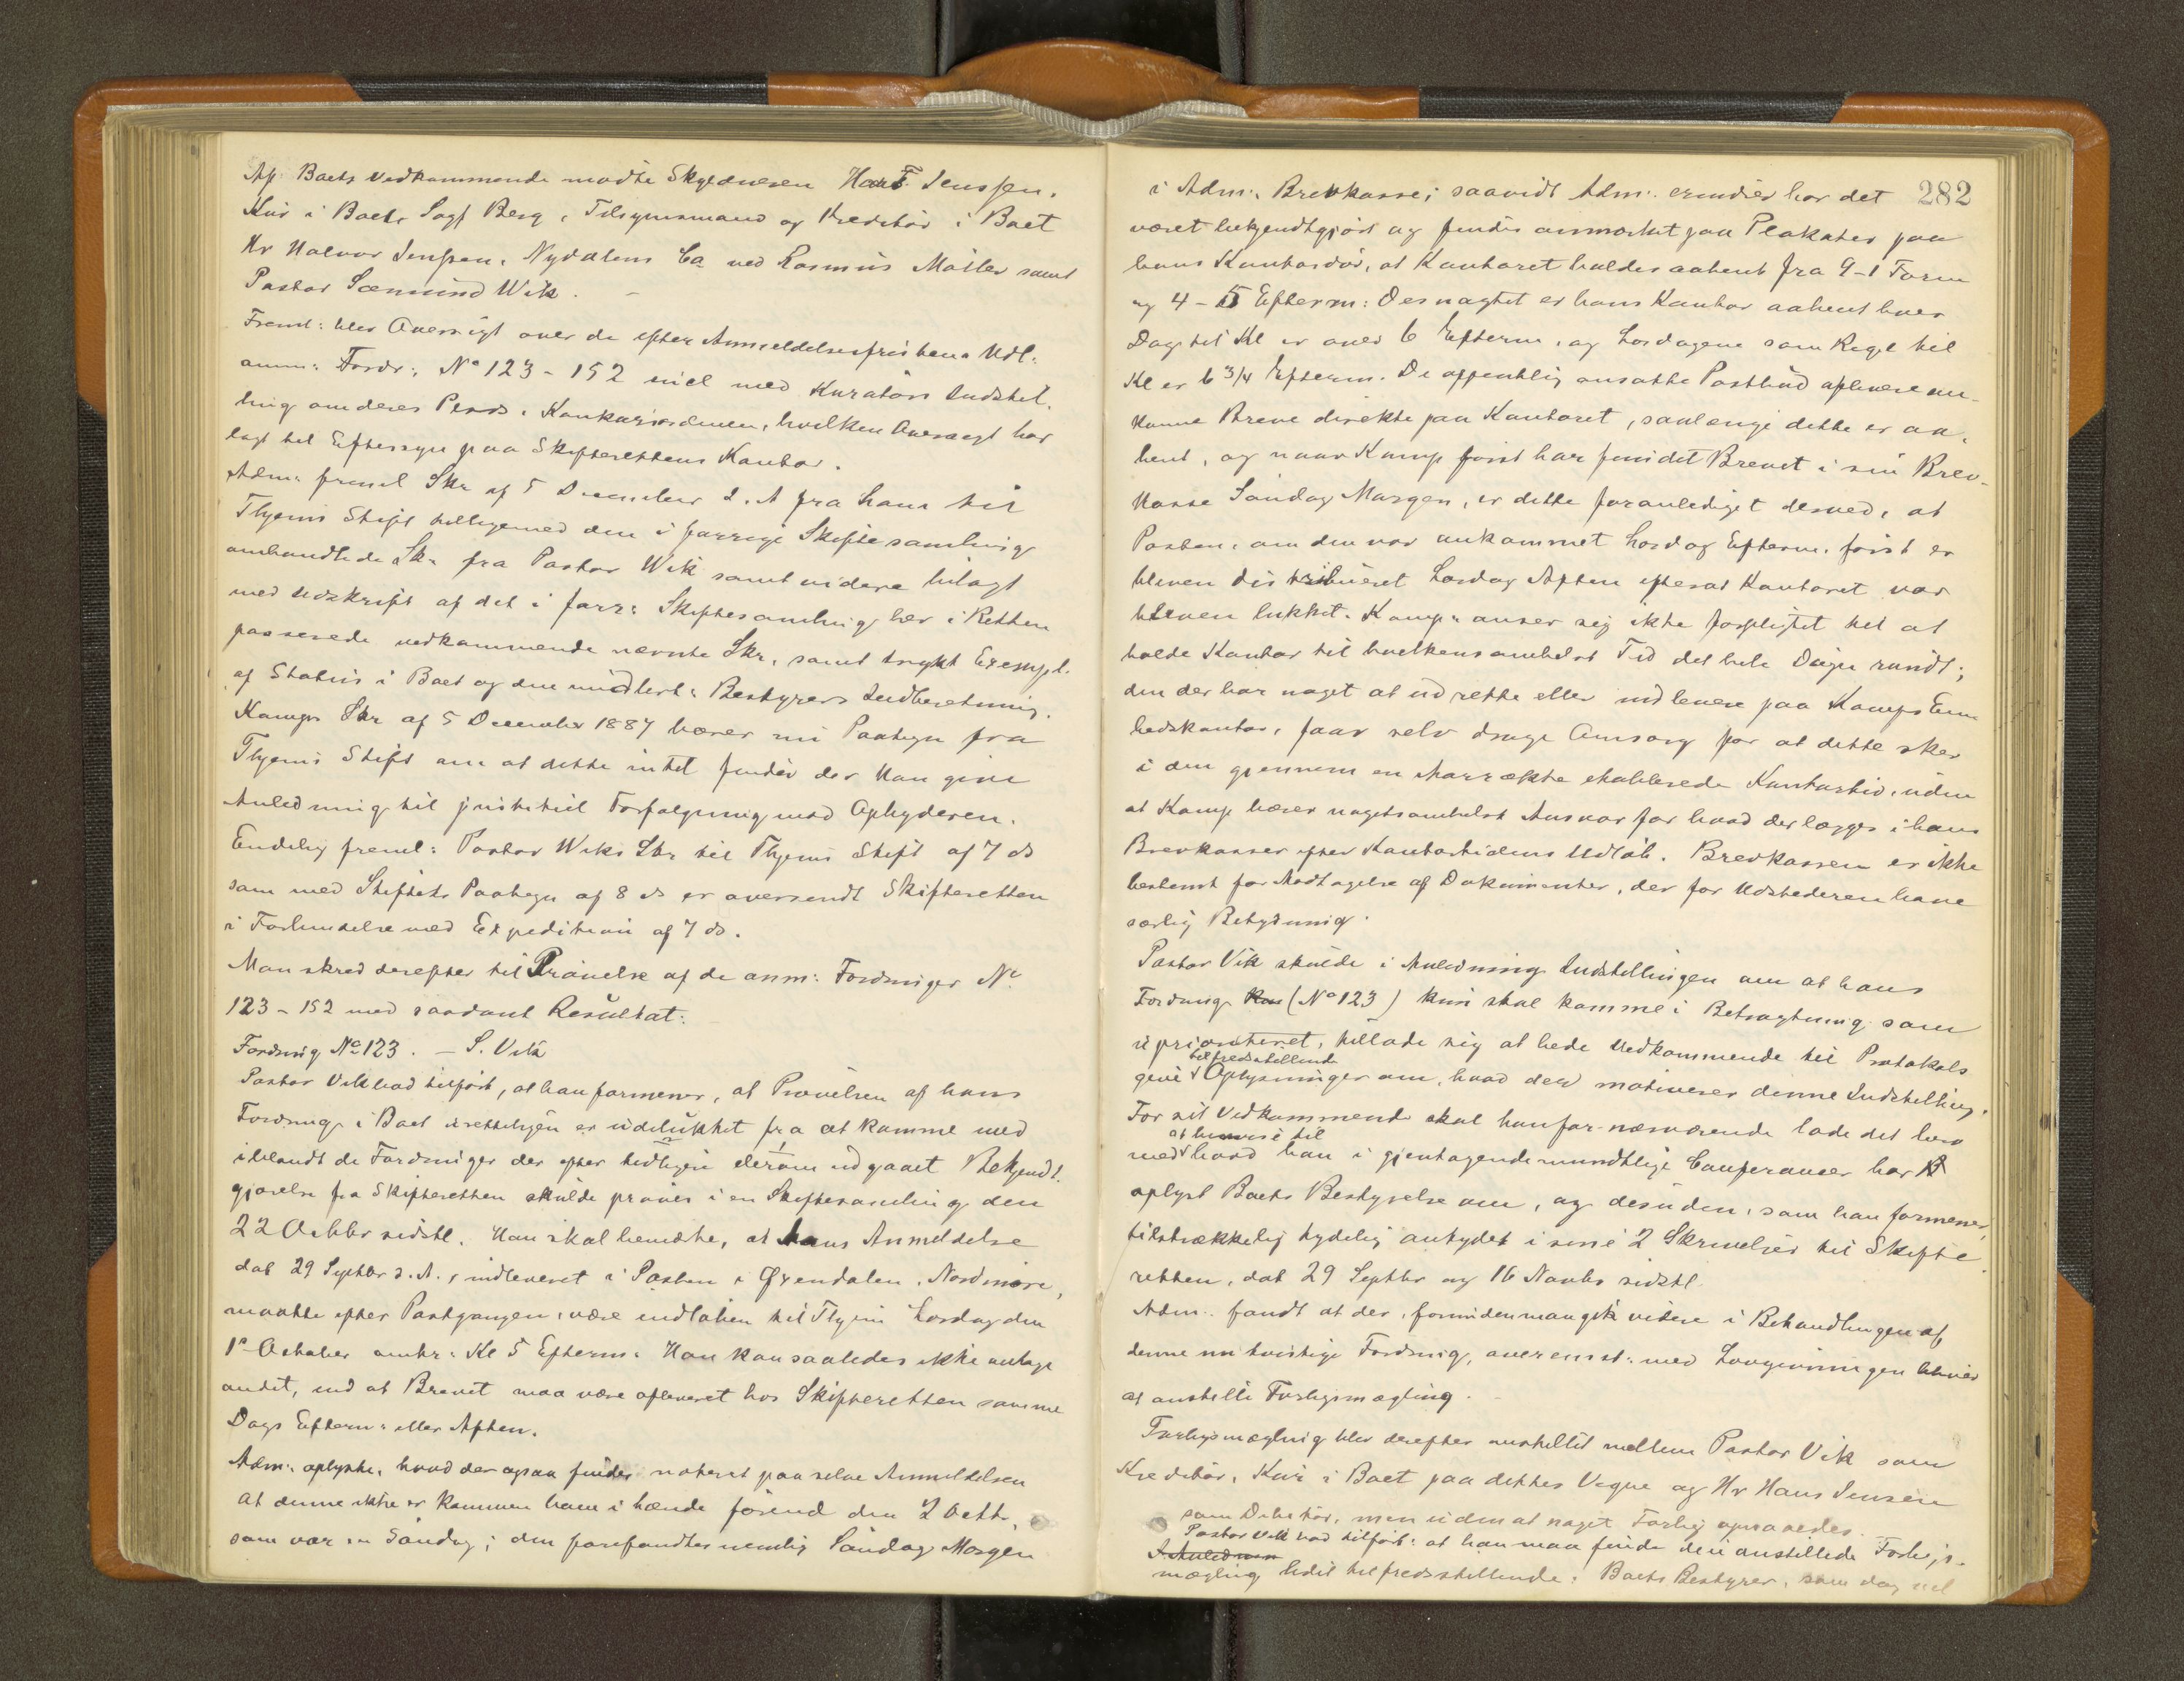 Af Boets Vedkommende mødte Skyldneren Hans F. Jenssen,
Kur i Boet, Sagf Berg, Tilsynsmand og Kreditor i Boet
Hr Halvor Jenssen, Nydalens Co ved Rasmus Møller samt
Pastor Sæmund Wik. –
Freml: blev Oversigt over de efter Anmeldelsesfristens Udl:
anm: Fordr: No 123 - 152 incl med Kurators Indstil-
ling om deres Plads i Konkursordenen, hvilken Oversigt har
lagt til Eftersyn paa Skifterettens Kontor.
Adm: freml Skr af 5 December d. A fra ham til
Thjems Stift tilligemed den i forrige Skiftesamling
omhandlede Skr fra Pastor Wik samt videre bilagt
med Udskrift af det i forr: Skiftesamling her i Retten
passerede vedkommende nævnte Skr, samt trykt Exempl.
af Status i Boet og den midlert: Bestyrers Indberetning.
Kamps Skr af 5 December 1887 bærer nu Paategn fra
Thjems Stift om at dette intet finder der kan give
Anledning til justitiel Forfølgning mod Ophyderen.
Endelig freml: Pastor Wiks Skr til Thjems Stift af 7 ds
som med Stiftets Paategn af 8 ds er oversendt Skifteretten
i Forbindelse med Expedition af 7 ds.
Man skred derefter til Prøvelse af de anm: Fordringer No
123 - 152 med saadant Resultat:
Fordring No 123. – S. Vik
Pastor Vik lod tilført, at han formener, at Prøvelsen af hans
Fordring i Boet rettelign er udelukket fra at komme med
iblandt de Fordringer der efter tidligere derom udgaaet Bekjendt-
gjørelse fra Skifteretten skulde prøves i en Skiftesamling den
22 Octbr sidstl. Han skal bemærke, at hans Anmeldelse
dat 29 Septbr d. A., indleveret i Posten i Øxendalen, Nordmøre,
maatte efter Postgangen, være indløben til Thjem Lørdag den
1ste October omtr: Kl 5 Efterm: Han kan saaledes ikke antage
andet, end at Brevet maa være afleveret hos Skifteretten samme
Dags Efterm: eller Aften.
Adm: oplyste, hvad der ogsaa findes noteret paa selve Anmeldelsen
at denne ikke er kommen ham i hænde førend den 2 Octb,
som var en Søndag; den forefandtes nemlig Søndag Morgen
282
i Adm: Brevkasse; saavidt Adm: erindrer har det
været bekjendtgjort og findes anmærket paa Plakater paa
hans Kontordør, at Kontoret holdes aabent fra 9-1 Form
og 4 - 5 Efterm: Desuagtet er hans Kontor aabent hver
Dag til Kl er over 6 Efterm, og Lørdagene som Regel til
Kl er 6 3/4 Efterm. De offentlig ansatte Postbud aflevere an-
komne Breve direkte paa Kontoret, saalænge dette er aa-
bent, og naar Kamp først har fundet Brevet i sin Brev-
kasse Søndag Morgen, er dette foranlediget derved, at
Posten, om den var ankommet Lørdag Efterm. først er
bleven distribueret Lørdag Aften efterat Kontoret var
bleven lukket. Kamp anser sig ikke forpligtet til at
holde Kontor til hvilkensomhelst Tid det hele Døgn rundt;
den der har noget at udrette eller indlevere paa Kamps Em-
bedskontor, faar selv drage Omsorg for at dette sker
i den gjennem en Aarrække etablerede Kontortid, uden
at Kamp bærer nogetsomhelst Ansvar for hvad der lægges i hans
Brevkasser efter Kontortidens Udløb. Brevkassen er ikke
bestemt for Modtagelse af Dokumenter, der for Udstederen have
særlig Betydning.
Pastor Vik skulde i Anledning Indstillingen om at hans
Fordring (No 123) kun skal komme i Betragtning som
uprioriteret, tillade sig at bede Vedkommende til Protokols
tilfredsstillende
give Oplysninger om, hvad der motiverer denne Indstilling.
For sit Vedkommende skal han for nærværende lade det bero
at henvise til
med hvad han i gjentagende mundtlige Conferancer har
oplyst Boets Bestyrelse om, og desuden, som han formener,
tilstrækkelig tydelig antydet i sine 2 Skrivelser til Skifte-
retten, dat 29 Septbr og 16 Novbr sidstl.
Adm: fandt at der, forinden man gik videre i Behandlingen af
denne omtvistige Fordring, overensst: med Lovgivningen bliver
at anstille Forligsmægling.
Forligsmægling blev derefter anstillet mellem Pastor Vik som
Kreditor, Kur i Boet paa dettes Vegne og Hr Hans Jensen
som Debitor, men uden at noget Forlig opnaaedes.
Pastor Vik lod tilført: at han maa finde den anstillede Forligs-
mægling lidet tilfredsstillende. Boets Bestyrer, som dog vel